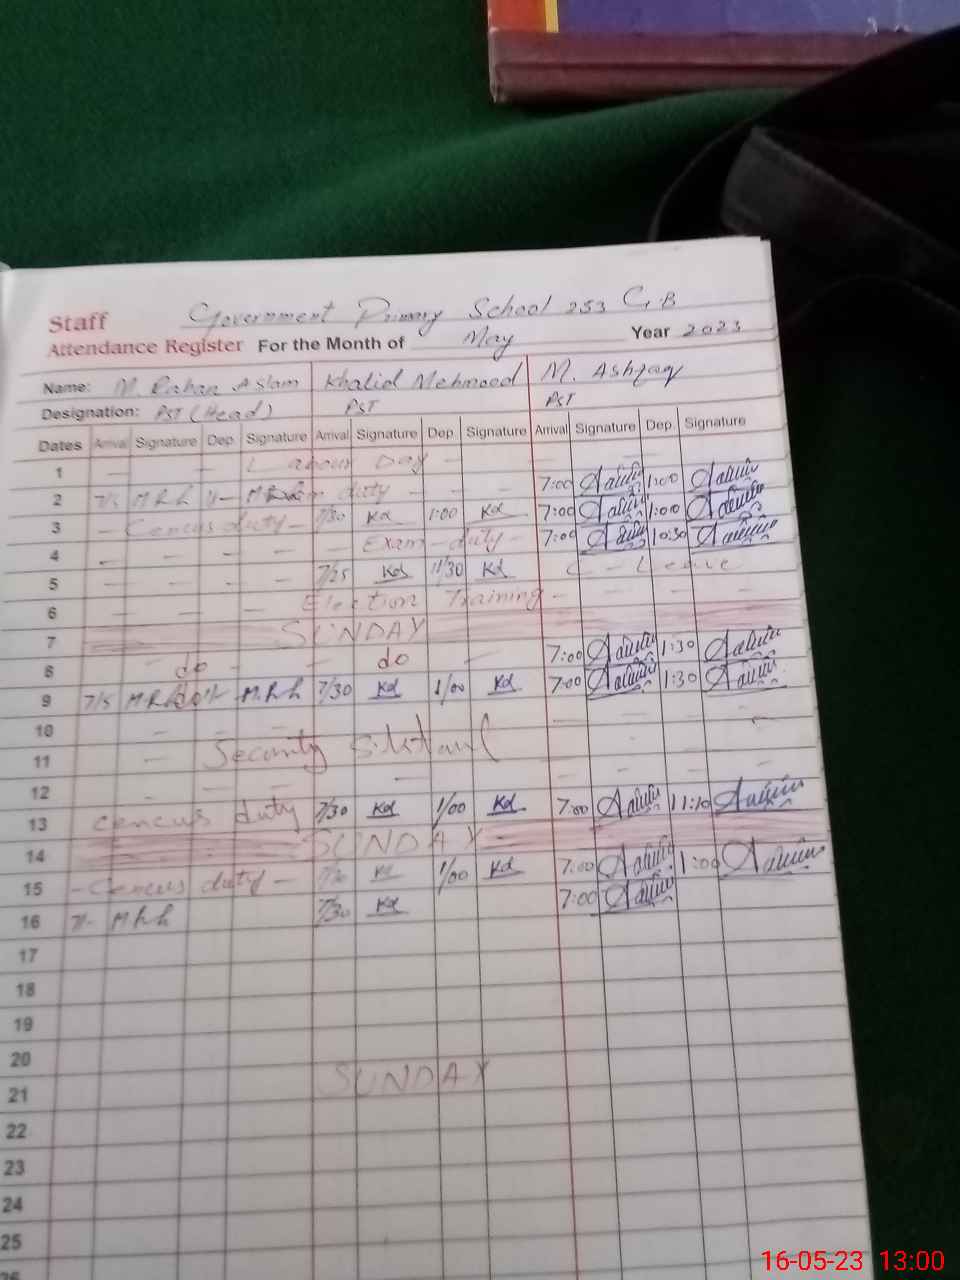 Government Primary School 253 G.B
Staff
Attendance Register For the Month of May Year 2023
Name: M. Aslam Khalid Mehmood M. Ashfaq
Designation: PST (Head) PST PST
Dates Arrival Signature Dep. Signature Arrival Signature Dep. Signature Arrival Signature Dep. Signature
1 - - Labour Day -
2 M R h duty - - - 7:00 1:00
3 - Cencus duty - 7/30 Kd 1:00 Kd 7:00 1:00
4 - - - - Exam - duty - 7:00 10:30
5 - - - - 7/25 Kd 11/30 Kd C - Leave
6 - - - Election Training -
7 SUNDAY
8 - do - - do - 7:00 1:30
9 7/5 M.R.h 7/30 Kd 1/00 Kd 7:00 1:30
10 - - - -
11 - Security
12 - - -
13 Cencus duty 7/30 Kd 1/00 Kd 7:00 11:10
14 SUNDAY -
15 - Cencus duty - Kd 1/00 Kd 7:00 1:00
16 M R h 7/30 Kd 7:00
17
18
19
20
21 SUNDAY
22
23
24
25
26
16-05-23 13:00